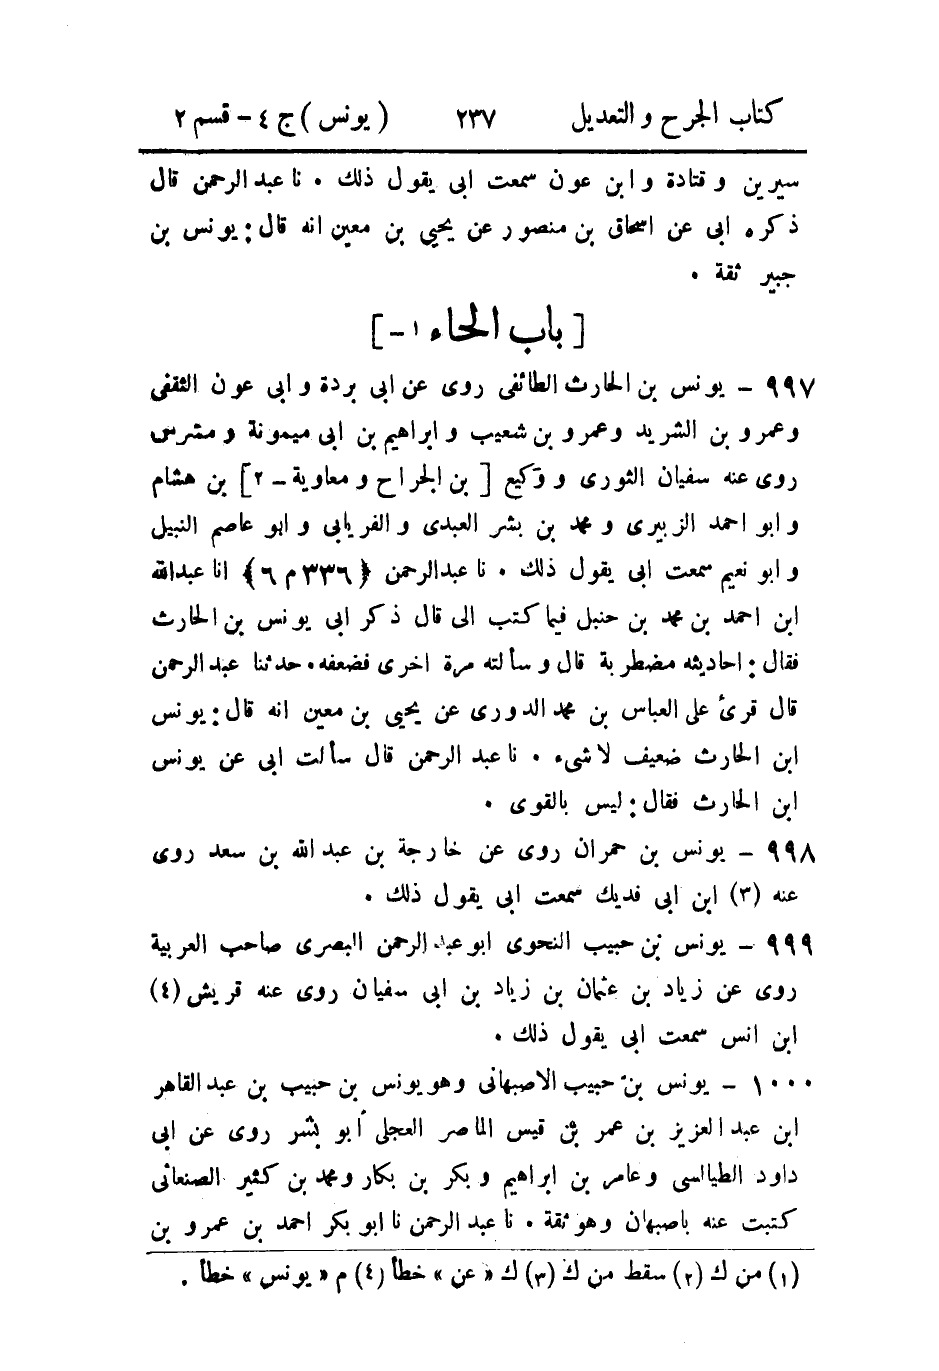 كتاب الجرح والتعديل ٢٣٧ (يونس) ج ٤ - قسم ٢
سيرين وقتادة وابن عون سمعت ابى يقول ذلك . نا عبد الرحمن قال
ذكره ابى عن اسحاق بن منصور عن يحيى بن معين انه قال : يونس بن
جبير ثقة .
[ باب الحاء ١ - ]
٩٩٧ - يونس بن الحارث الطائفى روى عن ابى بردة وابى عون الثقفى
وعمرو بن الشريد وعمرو بن شعيب وابراهيم بن ابى ميمونة ومشرس
روى عنه سفيان الثورى ووكيع [ بن الجراح ومعاوية - ٢ ] بن هشام
وابو احمد الزبيرى ومحمد بن بشر العبدى والفريابى وابو عاصم النبيل
وابو نعيم سمعت ابى يقول ذلك . نا عبد الرحمن ﴿ ٣٣٦ م ٦ ﴾ انا عبد الله
ابن احمد بن محمد بن حنبل فيما كتب الى قال ذكر ابى يونس بن الحارث
فقال : احاديثه مضطربة قال وسألته مرة اخرى فضعفه . حدثنا عبد الرحمن
قال قرئ على العباس بن محمد الدورى عن يحيى بن معين انه قال : يونس
ابن الحارث ضعيف لا شىء . نا عبد الرحمن قال سألت ابى عن يونس
ابن الحارث فقال : ليس بالقوى .
٩٩٨ - يونس بن حمران روى عن خارجة بن عبد الله بن سعد روى
عنه (٣) ابن ابى فديك سمعت ابى يقول ذلك .
٩٩٩ - يونس بن حبيب النحوى ابو عبد الرحمن البصرى صاحب العربية
روى عن زياد بن عثمان بن زياد بن ابى سفيان روى عنه قريش (٤)
ابن انس سمعت ابى يقول ذلك .
١٠٠٠ - يونس بن حبيب الاصبهانى وهو يونس بن حبيب بن عبد القاهر
ابن عبد العزيز بن عمر بن قيس الماصر العجلى أبو بشر روى عن ابى
داود الطيالسى وعامر بن ابراهيم وبكر بن بكار ومحمد بن كثير الصنعانى
كتبت عنه باصبهان وهو ثقة . نا عبد الرحمن نا ابو بكر احمد بن عمرو بن
(١) من ك (٢) سقط من ك (٣) ك « عن » خطأ (٤) م « يونس » خطأ .